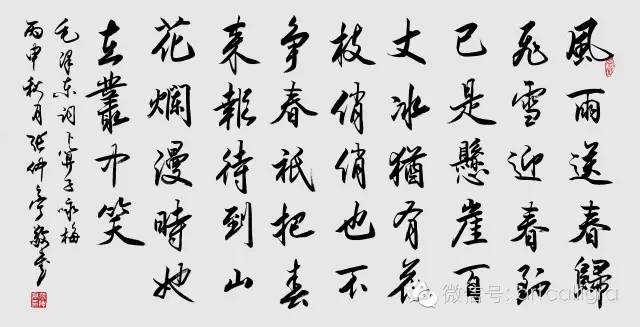 風雨送春歸
飛雪迎春到
已是懸崖百
丈冰猶有花
枝俏俏也不
争春祇把春
来報待到山
花爛漫時她
在叢中笑
毛泽东词卜算子咏梅
丙申秋月张仲亭敬書
微信号: